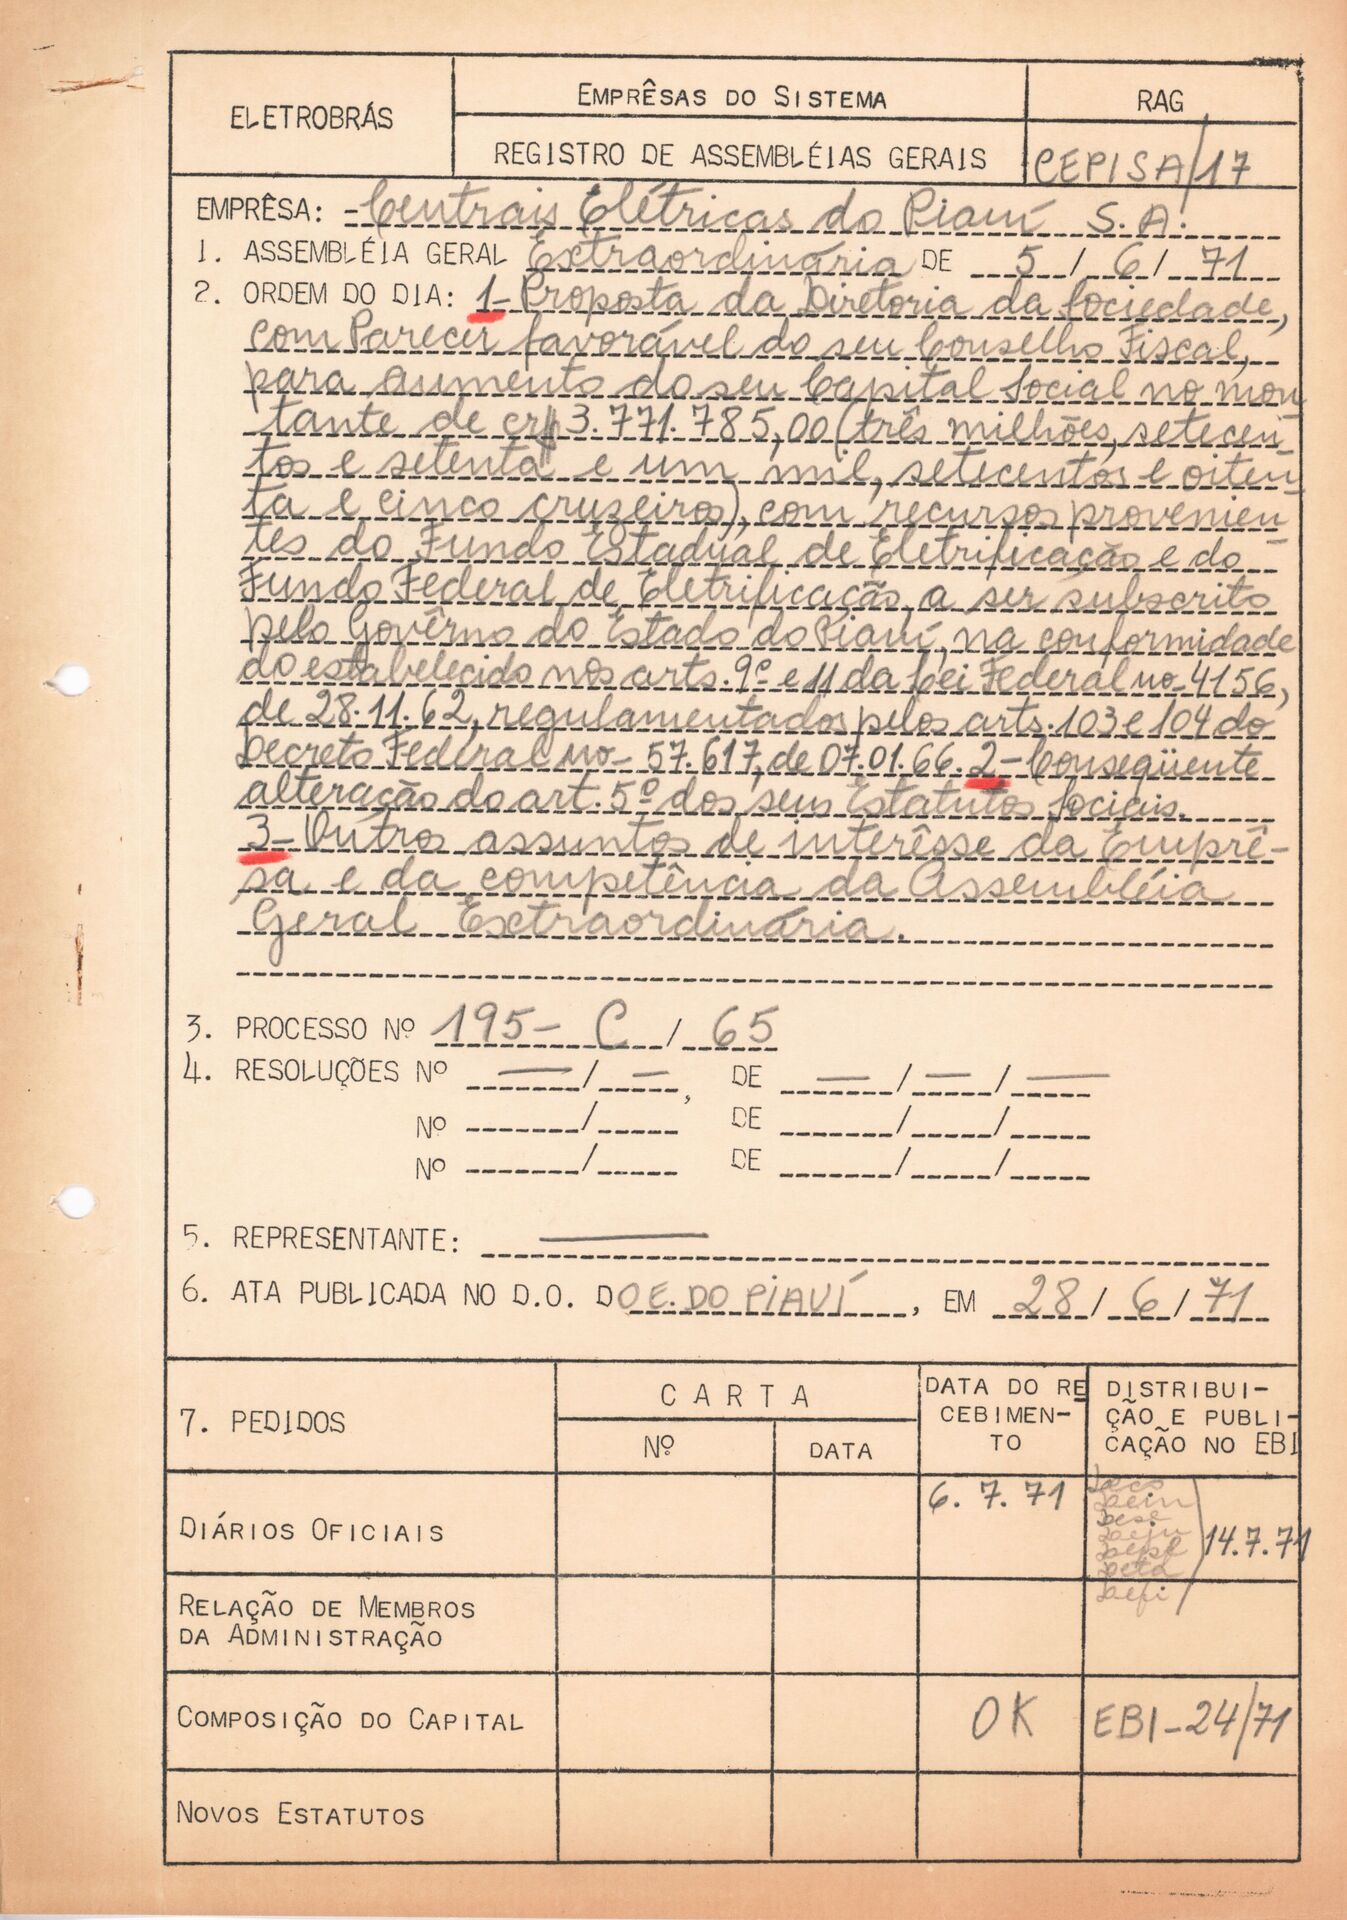 ELETROBRÁS
EMPRÊSAS DO SISTEMA
RAG
REGISTRO DE ASSEMBLÉIAS GERAIS
CEPISA/17
EMPRÊSA: Centrais Elétricas do Piauí S.A.
1. ASSEMBLÉIA GERAL Extraordinária DE 5/6/71
2. ORDEM DO DIA: 1- Proposta da Diretoria da Sociedade,
com Parecer favorável do seu Conselho Fiscal,
para aumento do seu Capital Social no mon-
tante de cr$ 3.771.785,00 (três milhões, setecen-
tos e setenta e um mil, setecentos e oiten-
ta e cinco cruzeiros), com recursos provenien-
tes do Fundo Estadual de Eletrificação e do
Fundo Federal de Eletrificação, a ser subscrito
pelo Govêrno do Estado do Piauí, na conformidade
do estabelecido nos arts. 9º e 11 da Lei Federal no- 4156,
de 28.11.62, regulamentados pelos arts. 103 e 104 do
Decreto Federal no- 57.617, de 07.01.66. 2- Conseqüente
alteração do art. 5º dos seus Estatutos Sociais.
3- Outros assuntos de interêsse da Emprê-
sa e da competência da Assembléia
Geral Extraordinária.
3. PROCESSO Nº 195-C/65
4. RESOLUÇÕES Nº —/—, DE —/—/—
Nº /  DE / /
Nº /  DE / /
5. REPRESENTANTE: —
6. ATA PUBLICADA NO D.O. DO E. DO PIAUÍ, EM 28/6/71
7. PEDIDOS
CARTA
Nº
DATA
DATA DO RE
CEBIMEN-
TO
DISTRIBUI-
ÇÃO E PUBLI-
CAÇÃO NO EBI
DIÁRIOS OFICIAIS
6.7.71
14.7.71
RELAÇÃO DE MEMBROS
DA ADMINISTRAÇÃO
COMPOSIÇÃO DO CAPITAL
OK
EBI-24/71
NOVOS ESTATUTOS